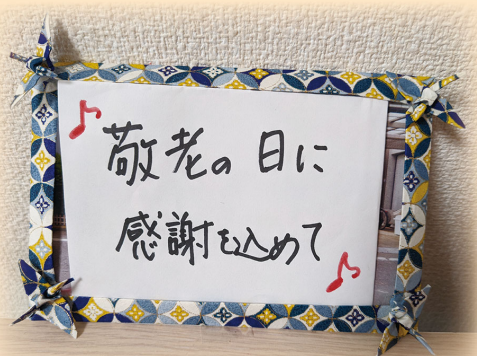 敬老の日に
感謝を込めて